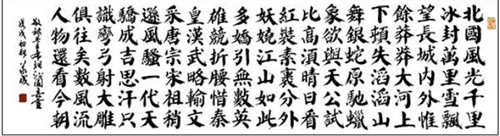 北國風光千里
冰封萬里雪飄
望長城內外惟
餘莽莽大河上
下頓失滔滔山
舞銀蛇原馳蠟
象欲與天公試
比高須晴日看
紅裝素裹分外
妖嬈江山如此
多嬌引無數英
雄競折腰惜秦
皇漢武略輸文
采唐宗宋祖稍
遜風騷一代天
驕成吉思汗只
識彎弓射大雕
俱往矣數風流
人物還看今朝
敬錄毛主席詞沁園春雪
戊戌初